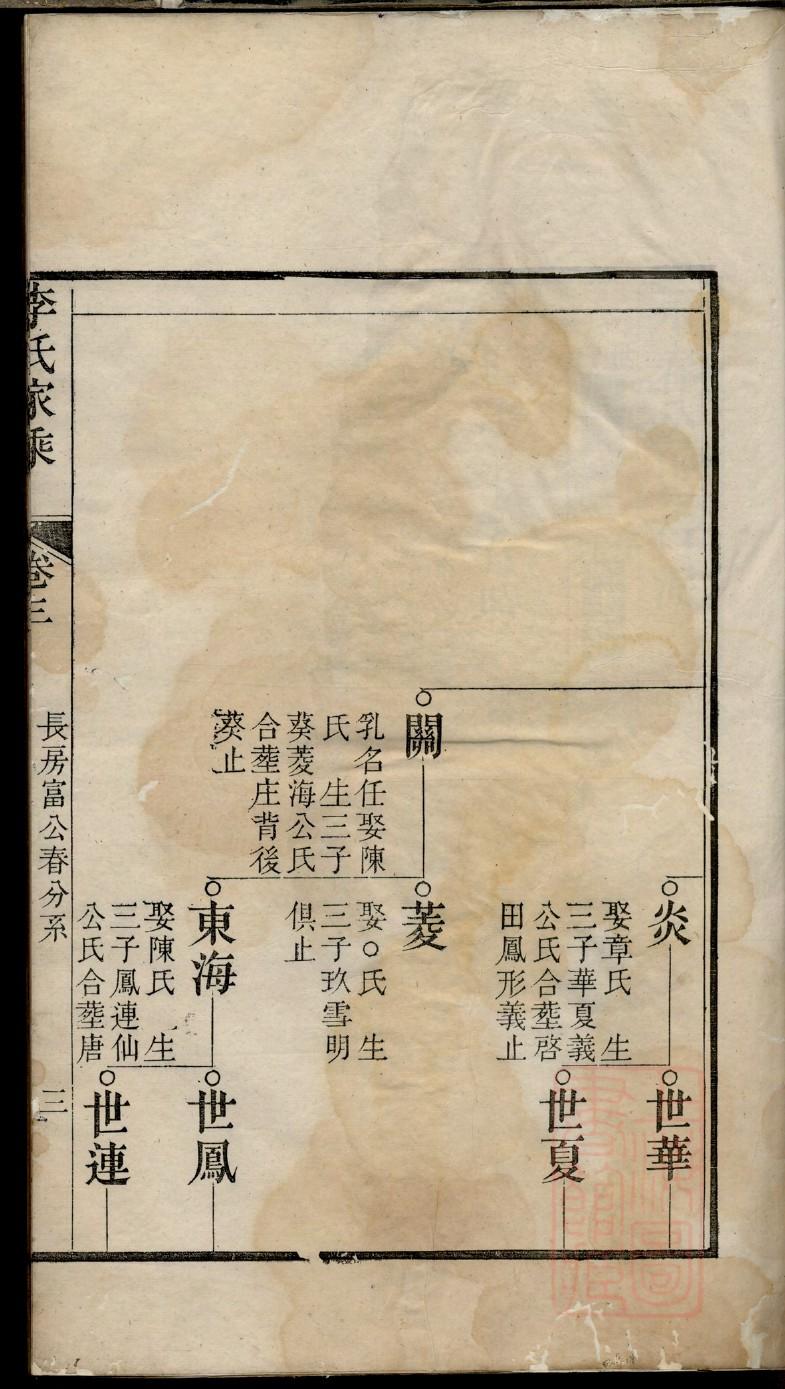 關
乳名任娶陳
氏　生三子
葵菱海公氏
合塟庄背後
葵止
炎
娶章氏　生
三子華夏義
公氏合塟啓
田鳳形義止
菱
娶○氏　生
三子玖雪明
俱止
東海
娶陳氏　生
三子鳳連仙
公氏合塟唐
世華
世夏
世鳳
世連
李氏家乘
卷三
長房富公春分系
三